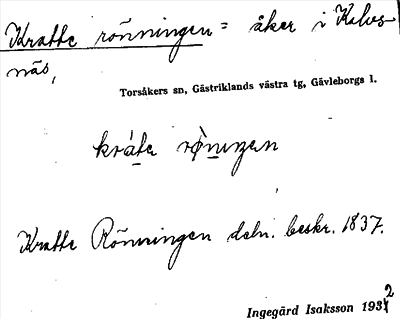 Kratte rönningen = åker i Kalvs-
näs,
Torsåkers sn, Gästriklands västra tg, Gävleborgs l.
kràtẹ rø̀nıŋẹn
Kratte Rönningen deln. beskr. 1837.
Ingegärd Isaksson 1932